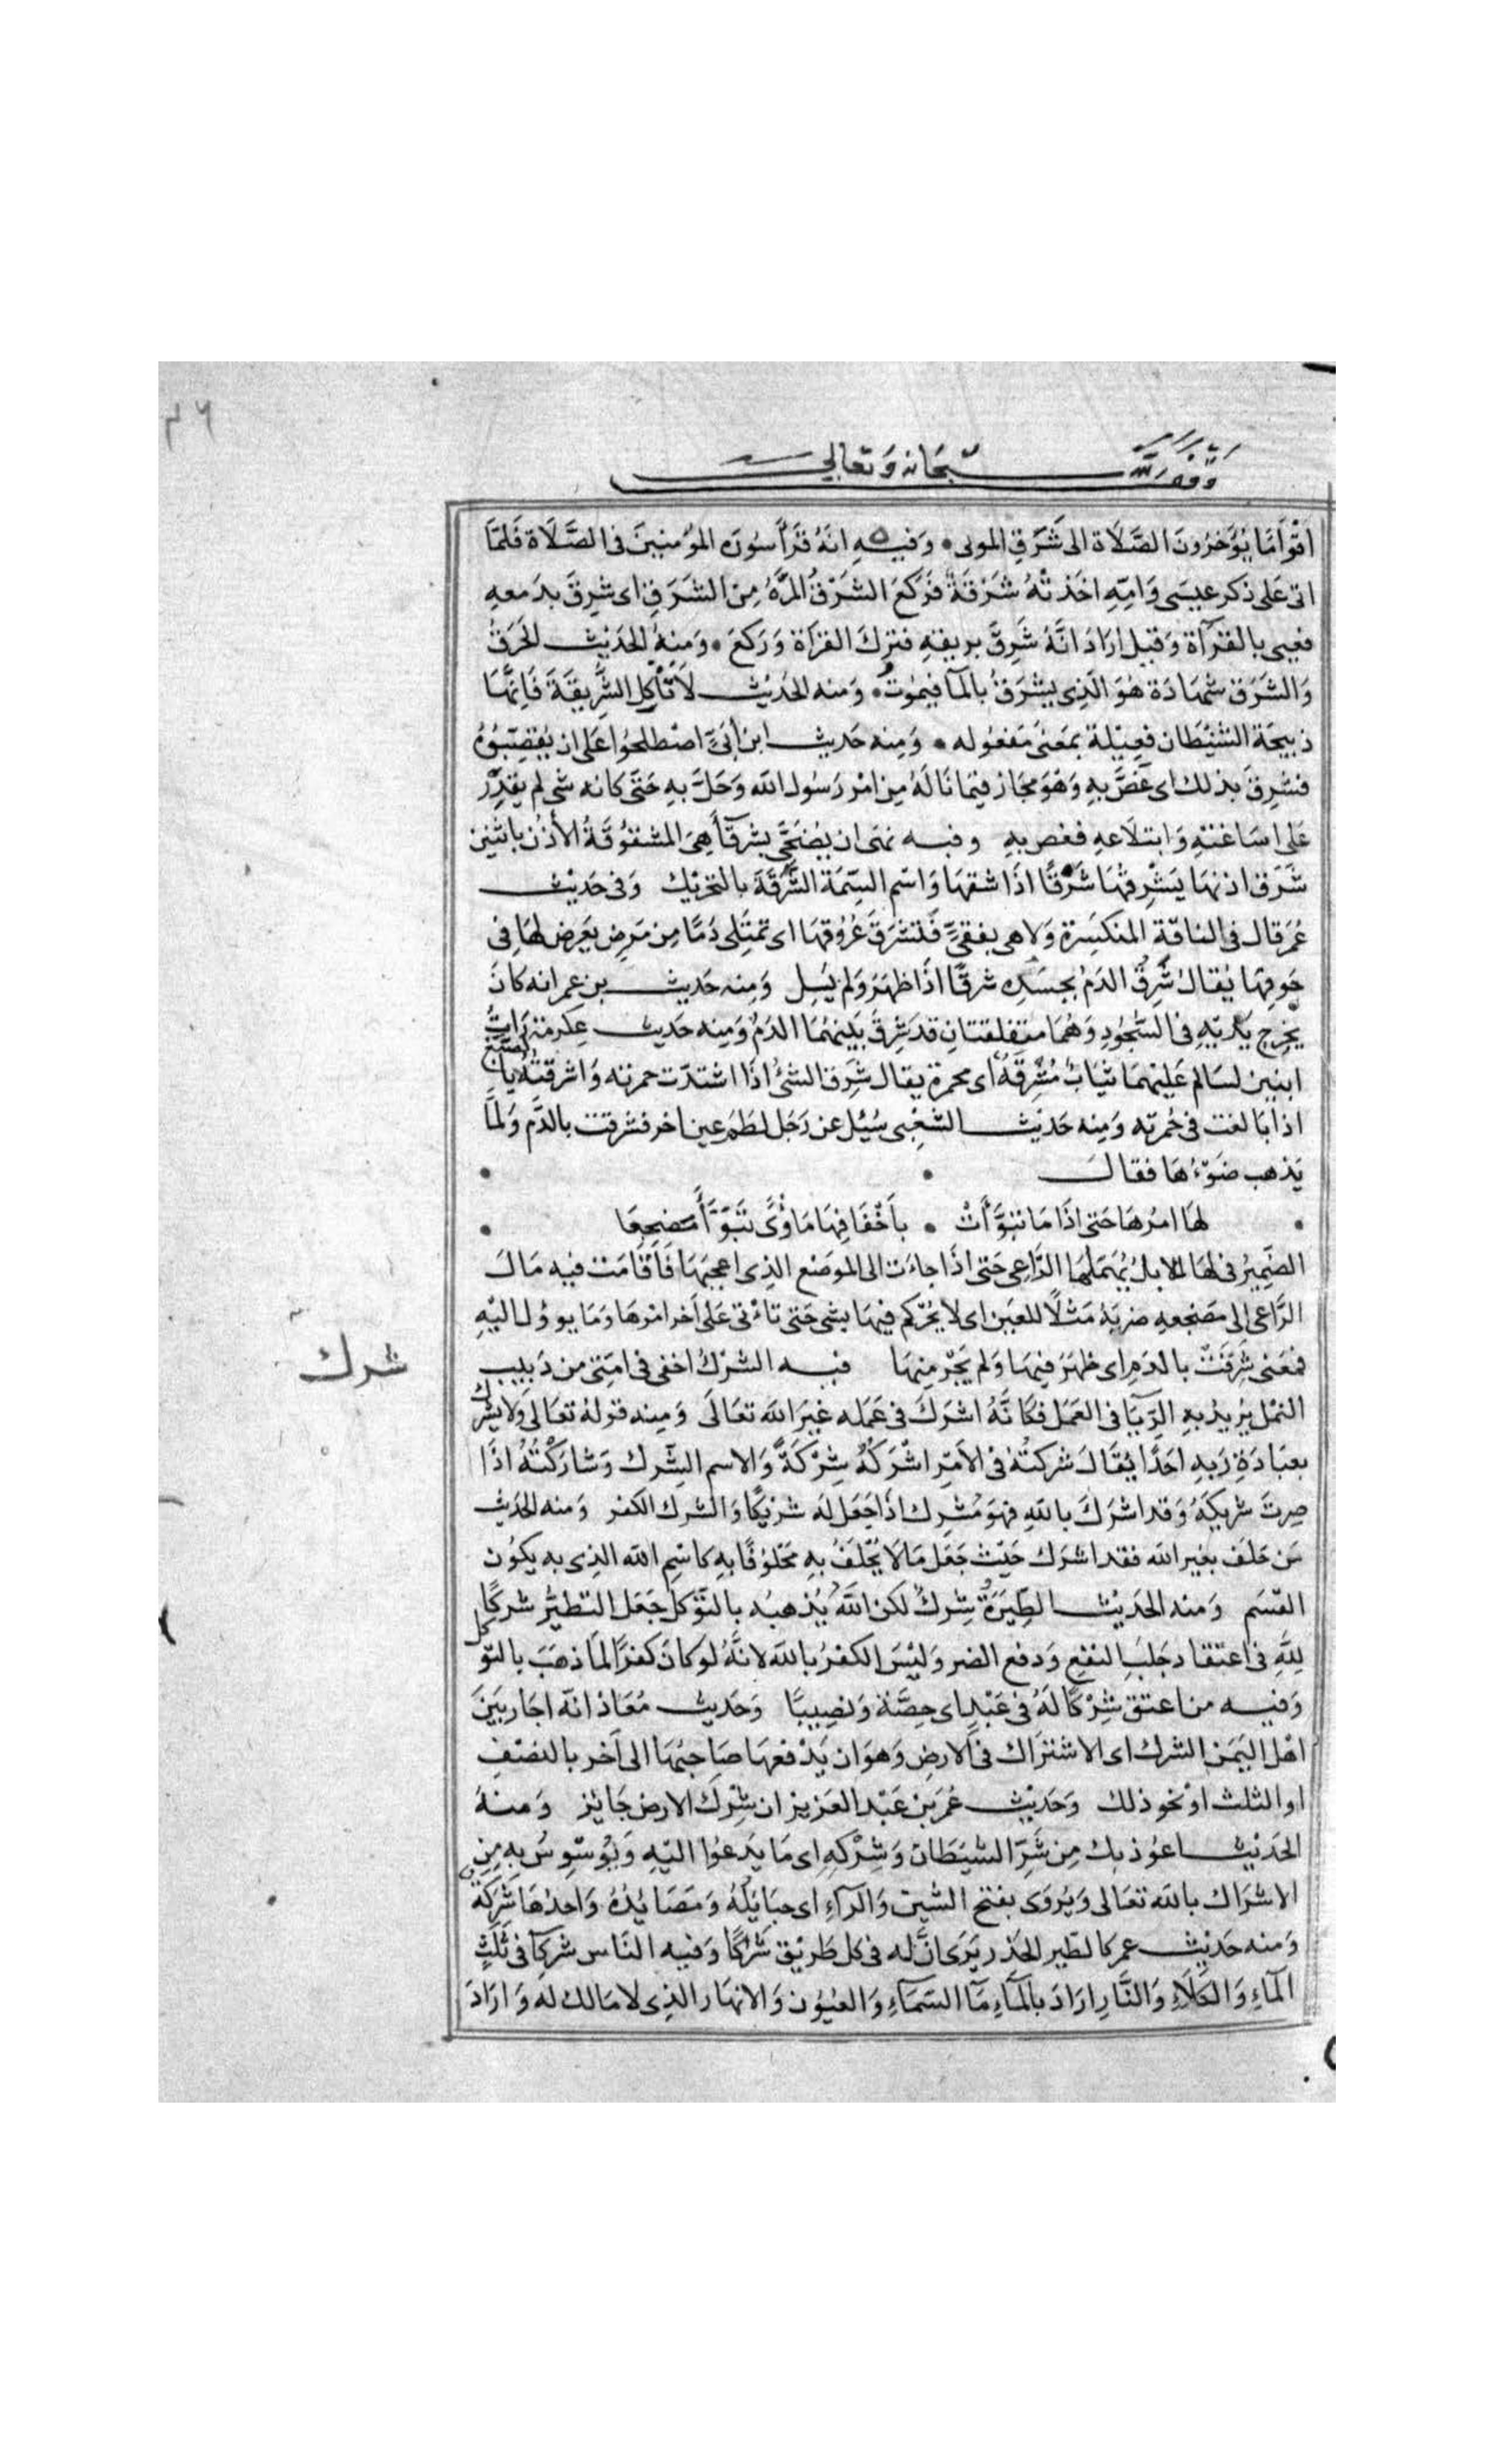 وقف لله سبحانه وتعالى
اقْوَامًا يُؤَخِرُونَ الصَّلَاة الى شَرَقِ الموتى • وَفيه انهُ قَرَأَ سورَة المؤمنينَ فى الصَّلَاة فَلمَّا
اتى عَلى ذكر عيسَى وَامِّهِ اخذتْهُ شَرْقَةٌ فَرَكَعَ الشَرْقَةُ المرَّهُ مِنَ الشَرَقِ اى شرِقَ بدَمعهِ
فعيى بالقرآة وَقيل ارَادَ انَّهُ شَرِقَ بريقهِ فترك القرآة وَرَكعَ • وَمنهُ الحَديث الحَرَقُ
وَالشَرَق شهَادَة هُوَ الَّذِى يَشرَقُ بالمآ فيمُوتُ • وَمنه الحَديث لَا تَأْكلِ الشَّرِيقَةَ فَانَّهَا
ذبيحَة الشَّيْطَان فعِيْلة بمَعْنىَ مَفعُوله • وَمِنه حَديث ابن اُبَىٍّ اصْطلحُوا عَلى ان يُعَصِّبُوهُ
فشرِقَ بذلك اى غَصَّ بهِ وَهْوَ مجَاز فيمَا نَالَهُ مِن امْر رَسُول الله وَحَلَّ بهِ حَتَّى كانه شى لم يقدِر
عَلى اسَاغتهِ وَابتلَاعهِ فغص بهِ وفيه نهَى ان يُضَحَّى بشرقآ هِىَ المشقوُقَةُ الأذُن باثنين
شَرَق اذنهَا يَشْرِقُهَا شَرْقًا اذَا شقهَا وَاسْم السِّمَة الشَّرَقَةَ بالتحْرِيْك وَفى حَديْث
عُمَر قال فى الناقة المنكسِرة وَلا هى بفقِىّ فَتشرَقَ عُرُوقهَا اى تمتَلى دَمًا مِن مَرض يَعرض لهَا فِى
جَوفِهَا يُقال شَرِقَ الدَمُ بجسَدِه شرقًا اذَا ظهَرَ وَلم يَسِل وَمِنه حَديث بن عمر انه كانَ
يُخرِج يَدَيْهِ فى السُّجُودِ وَهُمَا متفلقتَانِ قد شَرِقَ بَينهُمَا الدَمُ وَمِنه حَديث عِكرمَة رَايتُ
ابنين لسَالم عَليْهمَا ثيَابُ مُشْرِقَهُ اى محمرة يقال شَرِق الشئُ اذا اشتدّت حمرته وَاشرقتهُ بالصِّبْغ
اذا بَالغت فى حُمرته وَمِنه حَديْث الشَعْبى سُئِل عن رَجل لطَمَ عين اخر فشرقت بالدَّم وَلمَّا
يَذهب ضَوْءُهَا فقال •
• لهَا امرُهَا حَتى اذَا مَا تبَوَّأَتْ • باَخْفَافِهَا مَأوًى تَبَوَّأَ مَضجعَا •
الضَّمِيرُ فى لهَا للابل يُهملهَا الرَّاعِى حَتى اذَا جاءَت الى الموضع الذِى اعجبَهَا فَأقَامَت فيه مَالَ
الرَّاعى الى مَضجعهِ ضربَهُ مَثلًا للعَين اى لا يُحْكم فيهَا بشى حَتى تاتى عَلى آخر امْرهَا وَمَا يوول اليْهِ
فمَعَنى شرِقَتْ بالدَمِ اى ظهَرَ فِيهَا وَلم يَجْر مِنهَا فيه الشرْكُ اخفى فى امَتِى من دَبيب
شرك
النمْل يُريْدُ بهِ الرِّيَا فى العَمَل فكَانَّهُ اشرَكَ فى عَمَله غيرَ الله تعَالَى وَمِنه قولهُ تعَالَى وَلا يشرك
بعبَادَةِ رَبِهِ احَدًا يُقَال شركتُهُ فى الاَمْرِ اشْرَكُهُ شِرْكَةً وَالاسم الشِّرك وَشارَكْتُهُ اذَا
صِرتَ شريكَهُ وَقد اشرَكَ باللهِ فهوَ مُشْرِك اذَا جَعَل لَه شَرِيكًا وَالشرك الكفر وَمنه الحَدَيث
مَن حَلَف بغير الله فقد اشرك حَيْث جَعَل مَالَا يُحْلَفُ بهِ مَحَلوُفًا بهِ كاسْمِ الله الذِى به يكوُن
القسَم وَمنه الحَديْث الطِّيَرَةُ شِركٌ لكن اللهُ يُذهبُه بالتَوَكل جَعَل التطيُّرَ شركًا
لِلَّهِ فى اعتقاد جَلبِ النفعِ وَدفع الضر وَليْسَ الكفرُ بالله لانَّهُ لوَ كانَ كفرًا لمَا ذهَبَ بالتوكل
وَفيه من اعتق شِرْكًا لَهُ فى عَبْدٍ اى حِصَّة وَنصِيبًا وَحَديث مُعَاذ انه اجَاز بَيَنَ
اهْل اليَمَن الشرك اى الاشترَاك فى الارضِ وَهوَ ان يَدْفعهَا صَاحبُهَا الى آخر بالنصْفِ
او الثلث اوْ نحَو ذلك وَحَديْث عُمَر بن عَبْد العَزيز ان شِرك الارض جَايز وَمنهُ
الحَديْث اعوُذ بك مِن شَرِّ الشيَطان وَشِرْكهِ اى مَا يَدعُوا اليْهِ وَيُوَسْوِسُ بهِ مِن
الاشرَاك بالله تعَالى وَيُروَى بفتح الشين وَالرآءِ اى حبَايلُهُ وَمَصَايدُهُ وَاحدُهَا شَرَكَة
وَمنه حَديْث عمر كالطَير الحَذر يَرَى انَّ له فى كل طَريْق شَرَكًا وَفيه النَاس شركآ فى ثَلَثٍ
المآءِ وَالكَلَاءِ وَالنَّارِ ارَادَ بالمآءِ مآ السَمآءِ وَالعيُوُن وَالانهَار الذِى لا مَالك لهَ وَارَادَ